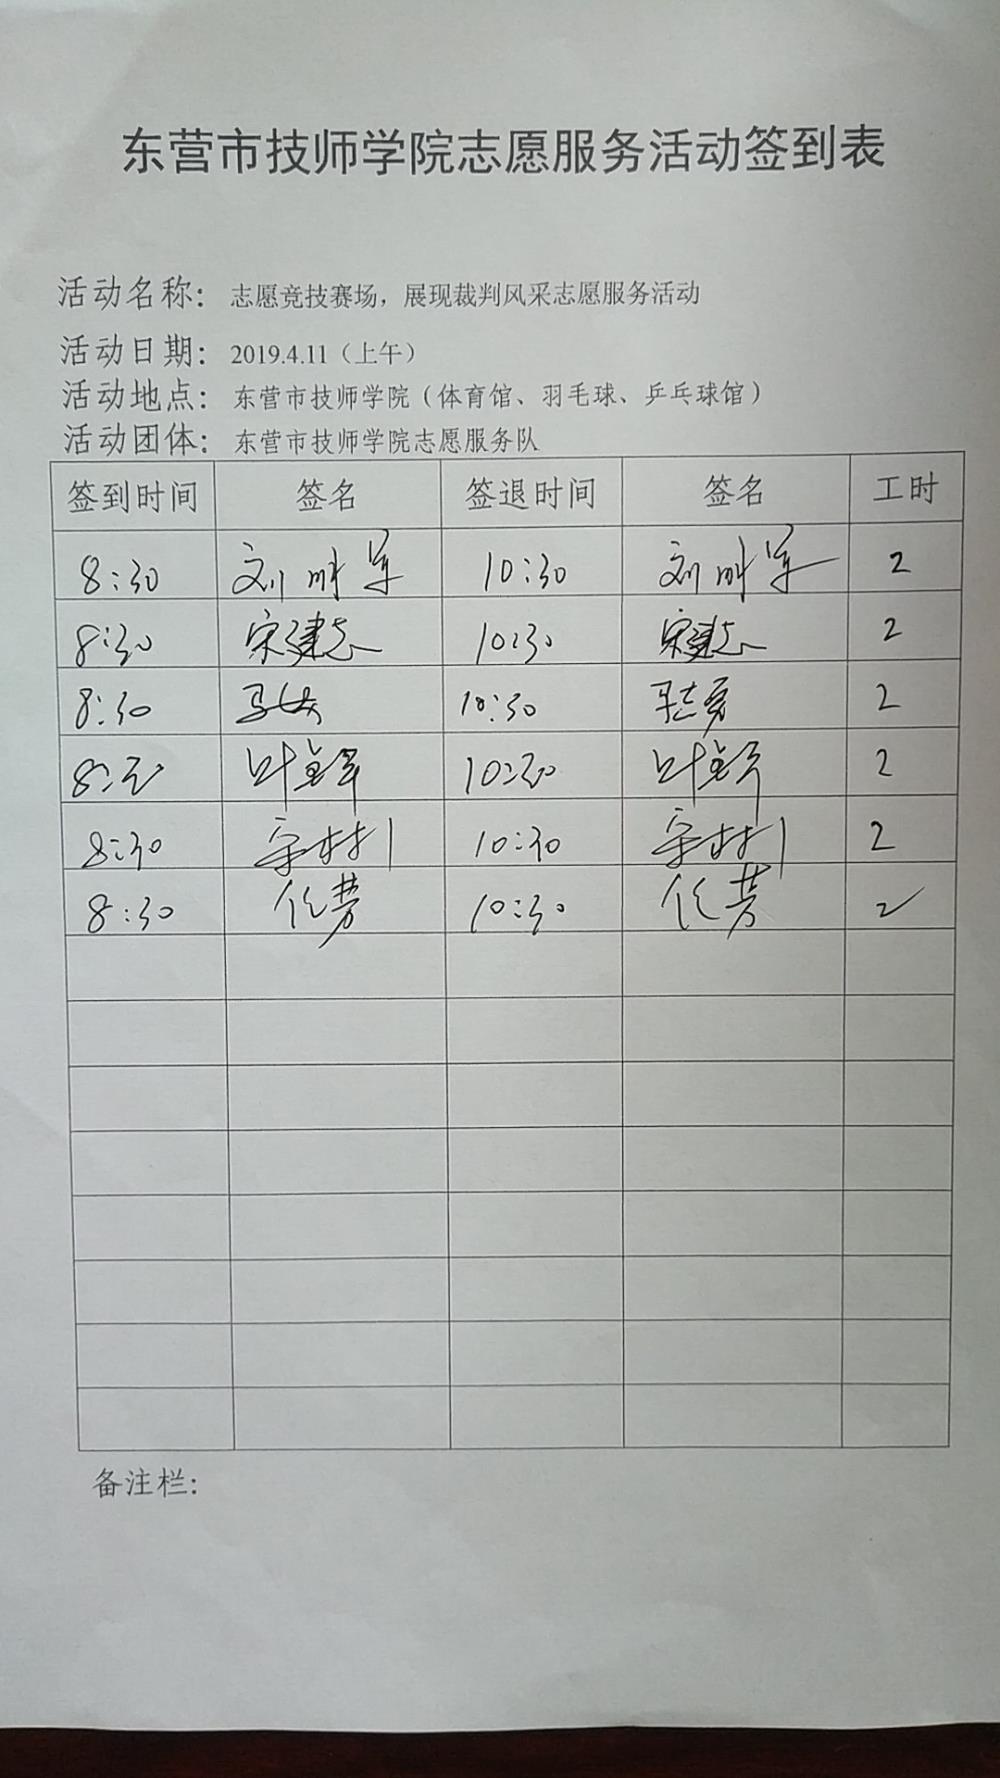 东营市技师学院志愿服务活动签到表
活动名称：志愿竞技赛场，展现裁判风采志愿服务活动
活动日期：2019.4.11（上午）
活动地点：东营市技师学院（体育馆、羽毛球、乒乓球馆）
活动团体：东营市技师学院志愿服务队
签到时间 签名 签退时间 签名 工时
8:30 刘明军 10:30 刘明军 2
8:30 宋建志 10:30 宋建志 2
8:30 10:30 2
8:30 10:30 2
8:30 10:30 2
8:30 任芳 10:30 任芳 2
备注栏：